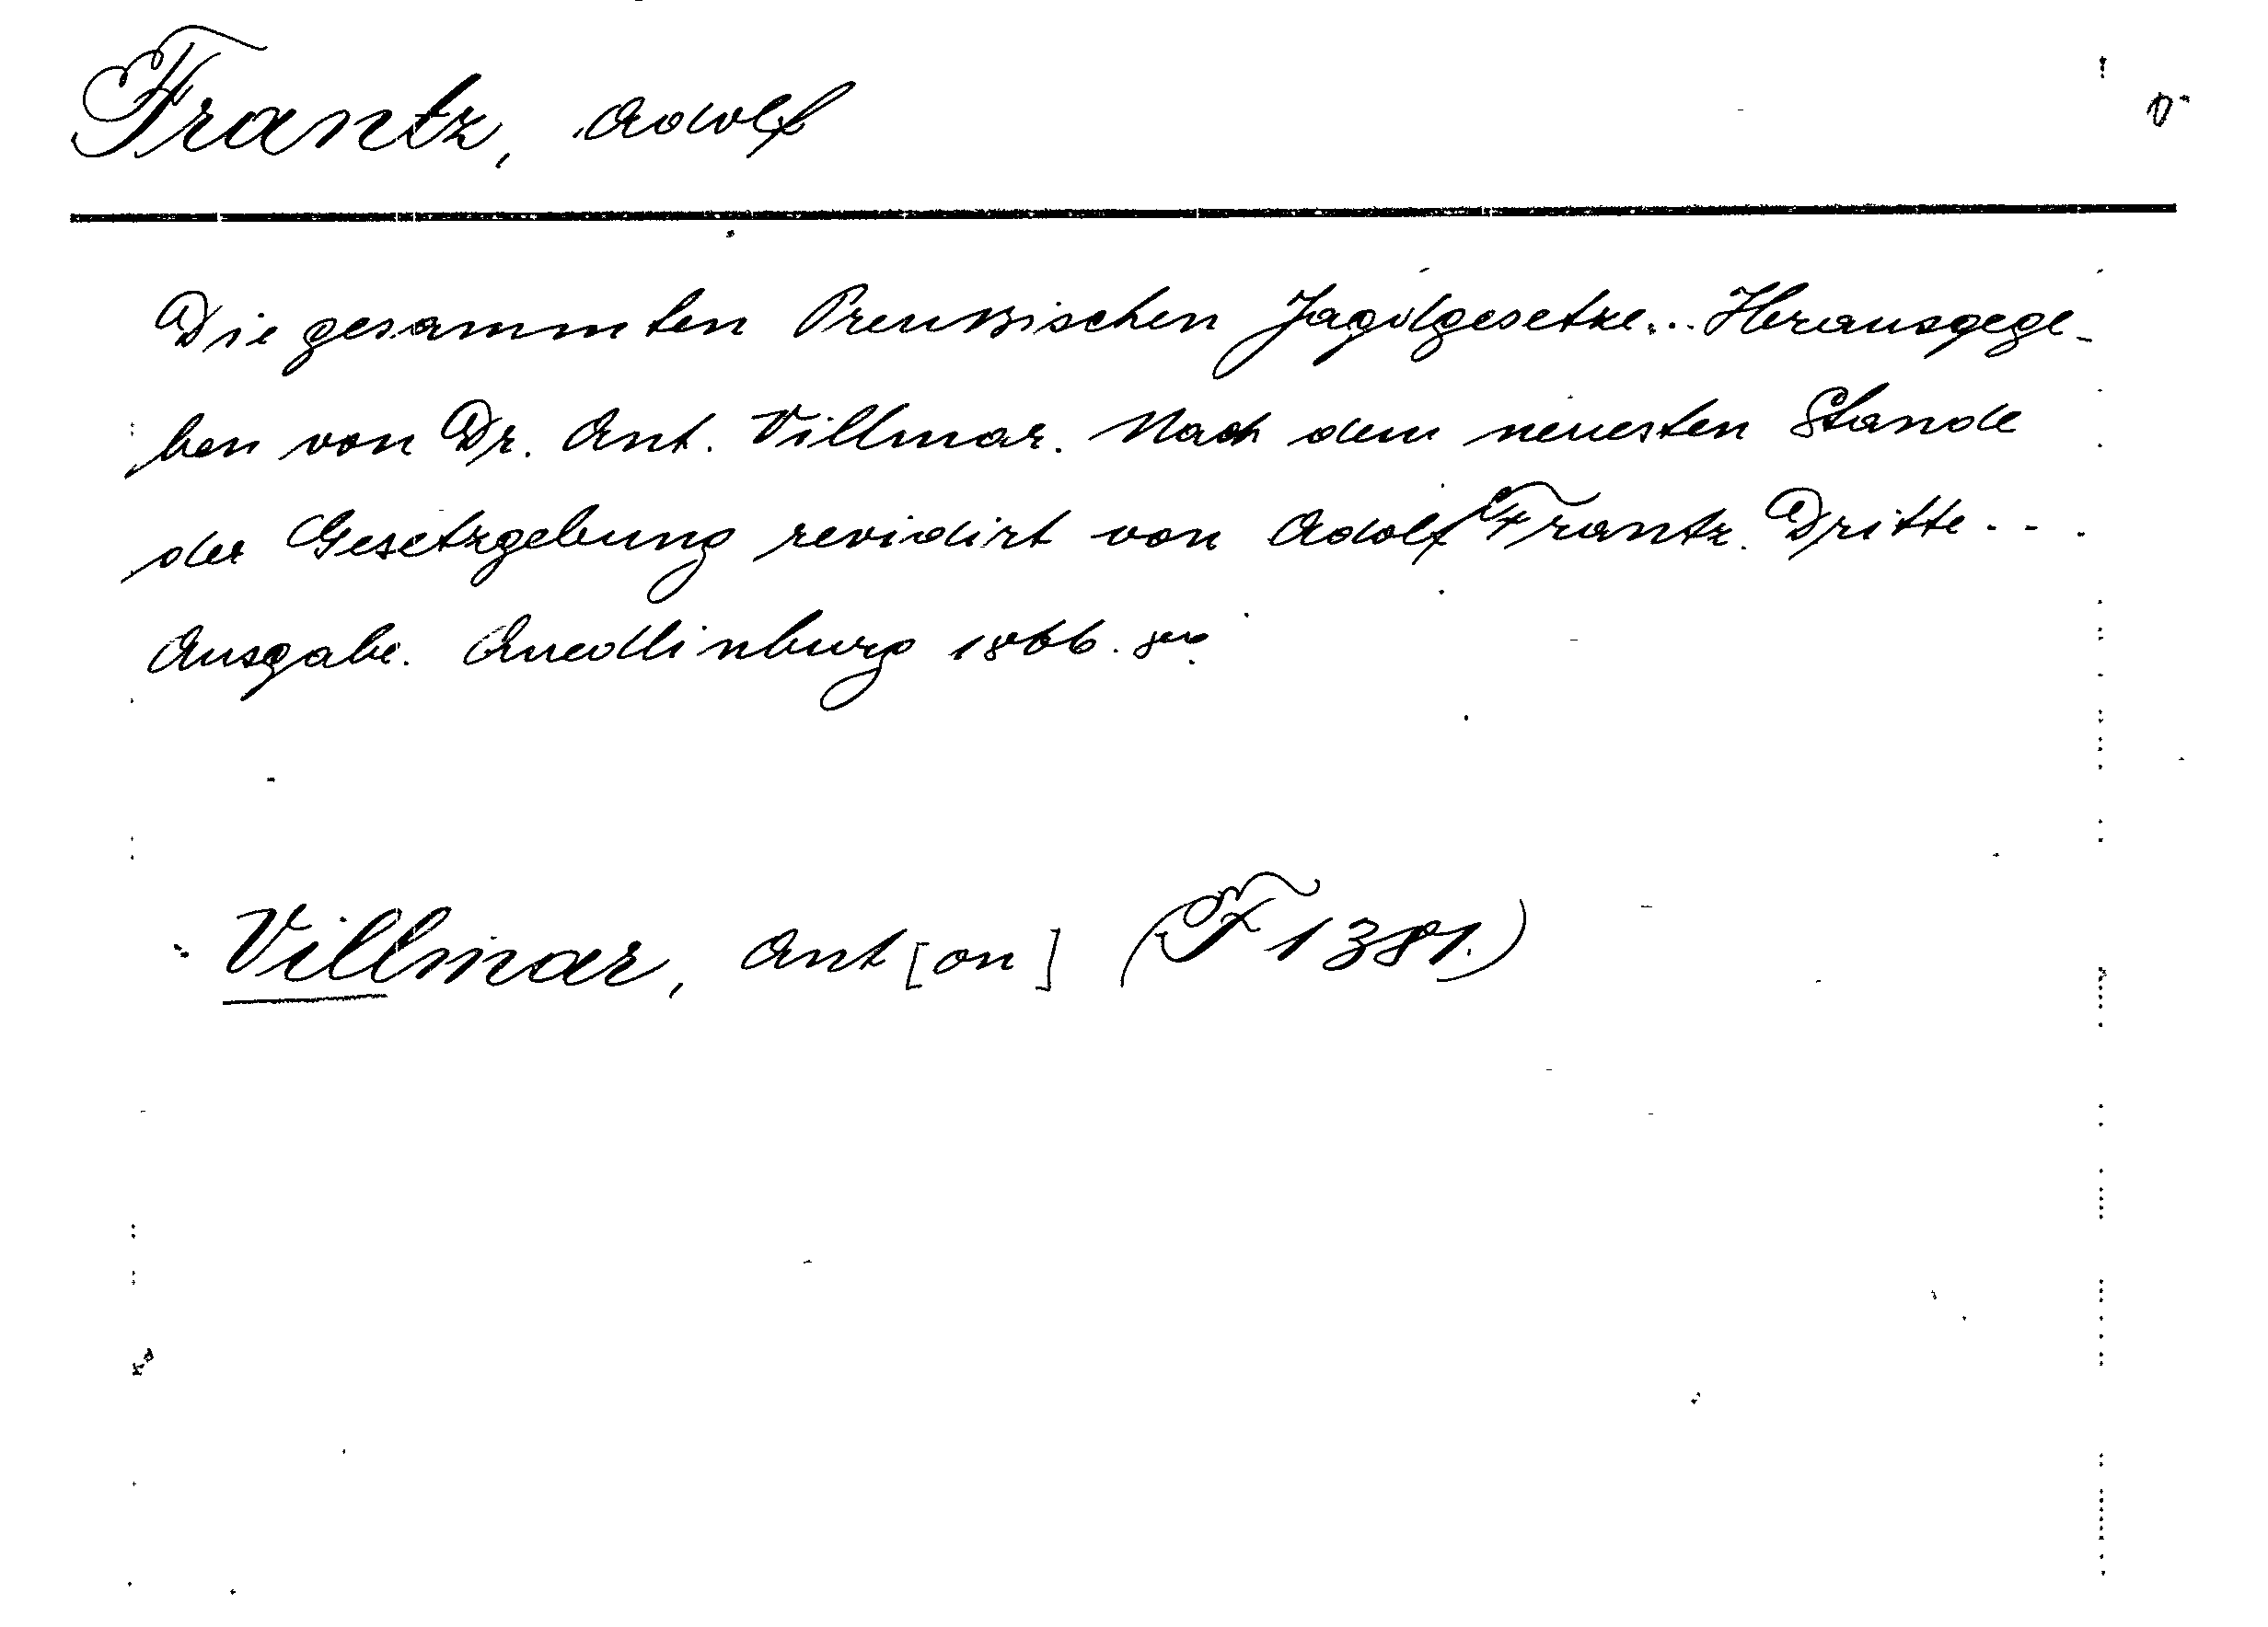 Frantz, Adolf
Die gesammten Preussischen Jagdgesetze... Herausgege-
ben von Dr. Ant. Villmar. Nach dem neuesten Stande
der Gesetzgebung revidirt von Adolf Frantz. Dritte...
Ausgabe. Quedlinburg 1866. 8vo.
Villmar, Ant[on] (F 1381.)